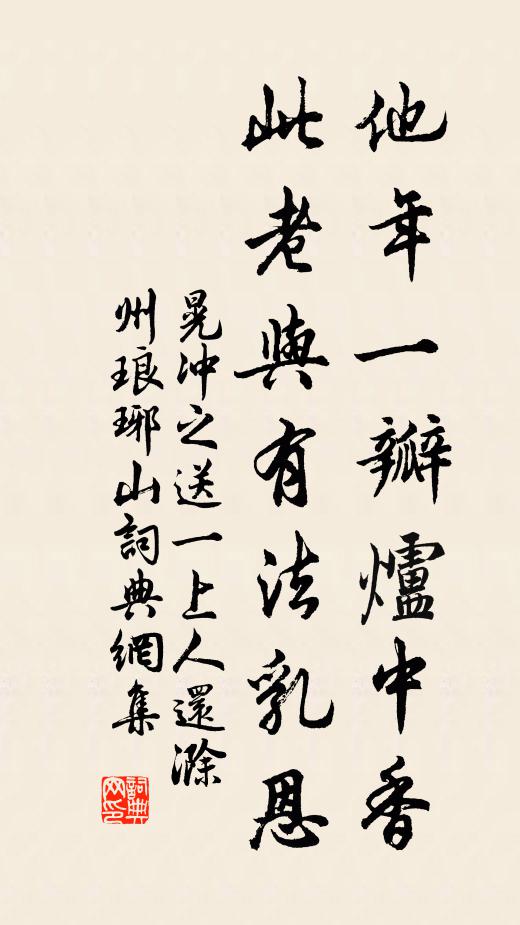 他年一瓣爐中香
此老與有法乳恩
晃冲之送一上人還滁
州琅琊山詞典網集
詞典
网印